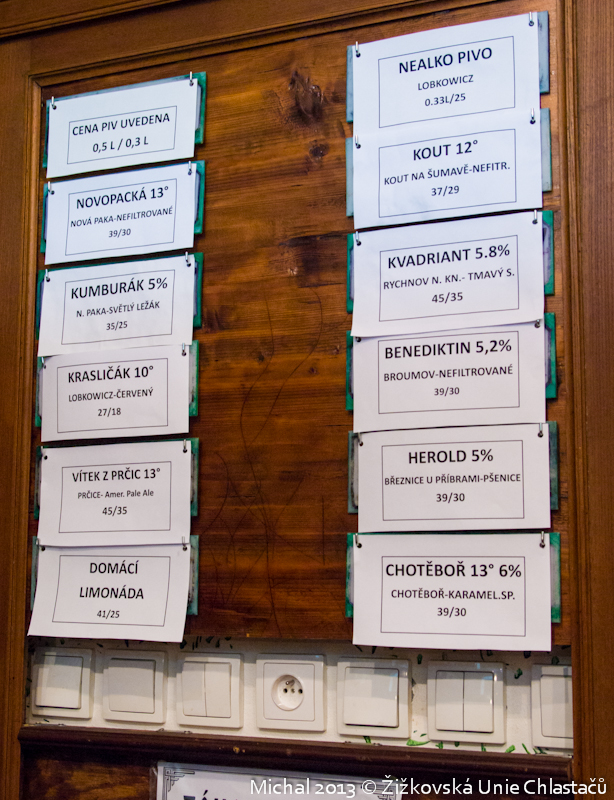 CENA PIV UVEDENA
0,5 L / 0,3 L
NOVOPACKÁ 13°
NOVÁ PAKA-NEFILTROVANÉ
39/30
KUMBURÁK 5%
N. PAKA-SVĚTLÝ LEŽÁK
35/25
KRASLIČÁK 10°
LOBKOWICZ-ČERVENÝ
27/18
VÍTEK Z PRČIC 13°
PRČICE- Amer. Pale Ale
45/35
DOMÁCÍ
LIMONÁDA
41/25
NEALKO PIVO
LOBKOWICZ
0.33L/25
KOUT 12°
KOUT NA ŠUMAVĚ-NEFITR.
37/29
KVADRIANT 5.8%
RYCHNOV N. KN.- TMAVÝ S.
45/35
BENEDIKTIN 5,2%
BROUMOV-NEFILTROVANÉ
39/30
HEROLD 5%
BŘEZNICE U PŘÍBRAMI-PŠENICE
39/30
CHOTĚBOŘ 13° 6%
CHOTĚBOŘ-KARAMEL.SP.
39/30
Michal 2013 © Žižkovská Unie Chlastačů